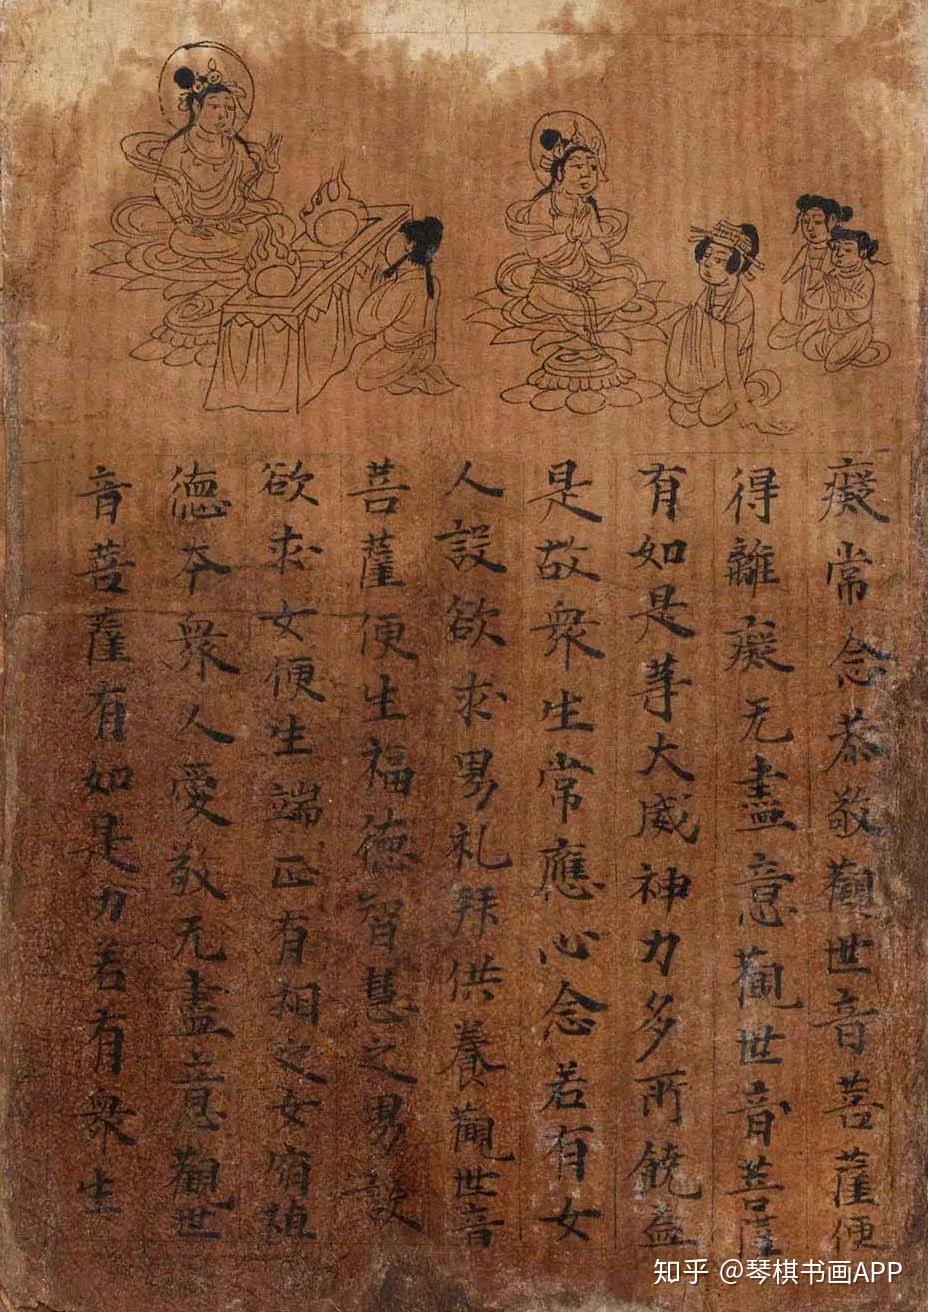 癡常念恭敬觀世音菩薩便
得離癡无盡意觀世音菩薩
有如是等大威神力多所饒益
是故衆生常應心念若有女
人設欲求男礼拜供養觀世音
菩薩便生福德智慧之男設
欲求女便生端正有相之女宿殖
德本衆人愛敬无盡意觀世
音菩薩有如是力若有衆生
知乎 @琴棋书画APP